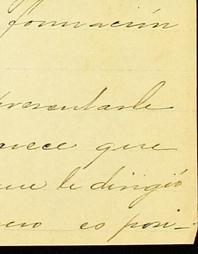 formación
presentarle
arece que
que le dirigió
pero es posi-